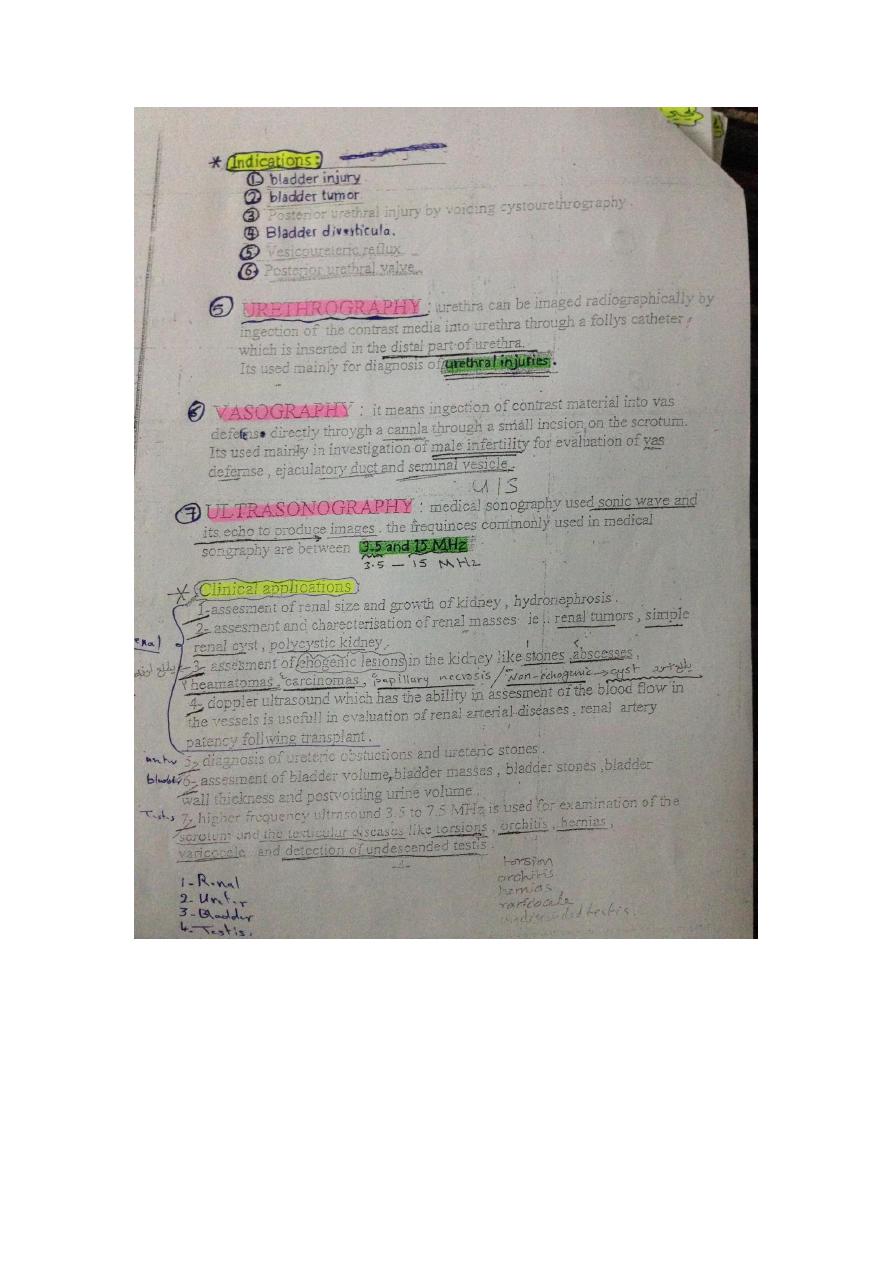 * Indications:
① bladder injury
② bladder tumor
③ Posterior urethral injury by voicing cystourethrography.
④ Bladder diverticula.
⑤ Vesicoureteric reflux
⑥ Posterior urethral valve
5 URETHROGRAPHY : urethra can be imaged radiographically by
ingection of the contrast media into urethra through a follys catheter,
which is inserted in the distal part of urethra.
Its used mainly for diagnosis of urethral injuries.
6 VASOGRAPHY : it means ingection of contrast material into vas
defense directly throygh a cannla through a small incsion on the scrotum.
Its used mainly in investigation of male infertility for evaluation of vas
defernse , ejaculatory duct and seminal vesicle.
U/S
7 ULTRASONOGRAPHY : medical sonography used sonic wave and
its echo to produce images . the frequinces commonly used in medical
songraphy are between 3.5 and 15 MHz
3.5 — 15 MHz
* Clinical applications
1-assesment of renal size and growth of kidney , hydronephrosis .
2- assesment and charecterisation of renal masses ie .. renal tumors , simple
renal cyst , polycystic kidney .
3- assesment of ehogenic lesions in the kidney like stones ,abscesses ,
heamatomas , carcinomas , papillary necrosis / Non-echogenic → cyst
4- doppler ultrasound which has the ability in assesment of the blood flow in
the vessels is usefull in evaluation of renal arterial diseases , renal artery
patency follwing transplant .
5- diagnosis of ureteric obstuctions and ureteric stones .
bladder 6- assesment of bladder volume,bladder masses , bladder stones ,bladder
wall thickness and postvoiding urine volume .
Testis 7- higher frequency ultrasound 3.5 to 7.5 MHz is used for examination of the
scrotum and the testicular diseases like torsions , orchitis , hernias ,
varicocele and detection of undescended testis .
-4-
torsion
orchitis
hernias
varicocele
undescended testis.
1- Renal
2- Uretr
3- Bladder
4- Testis.